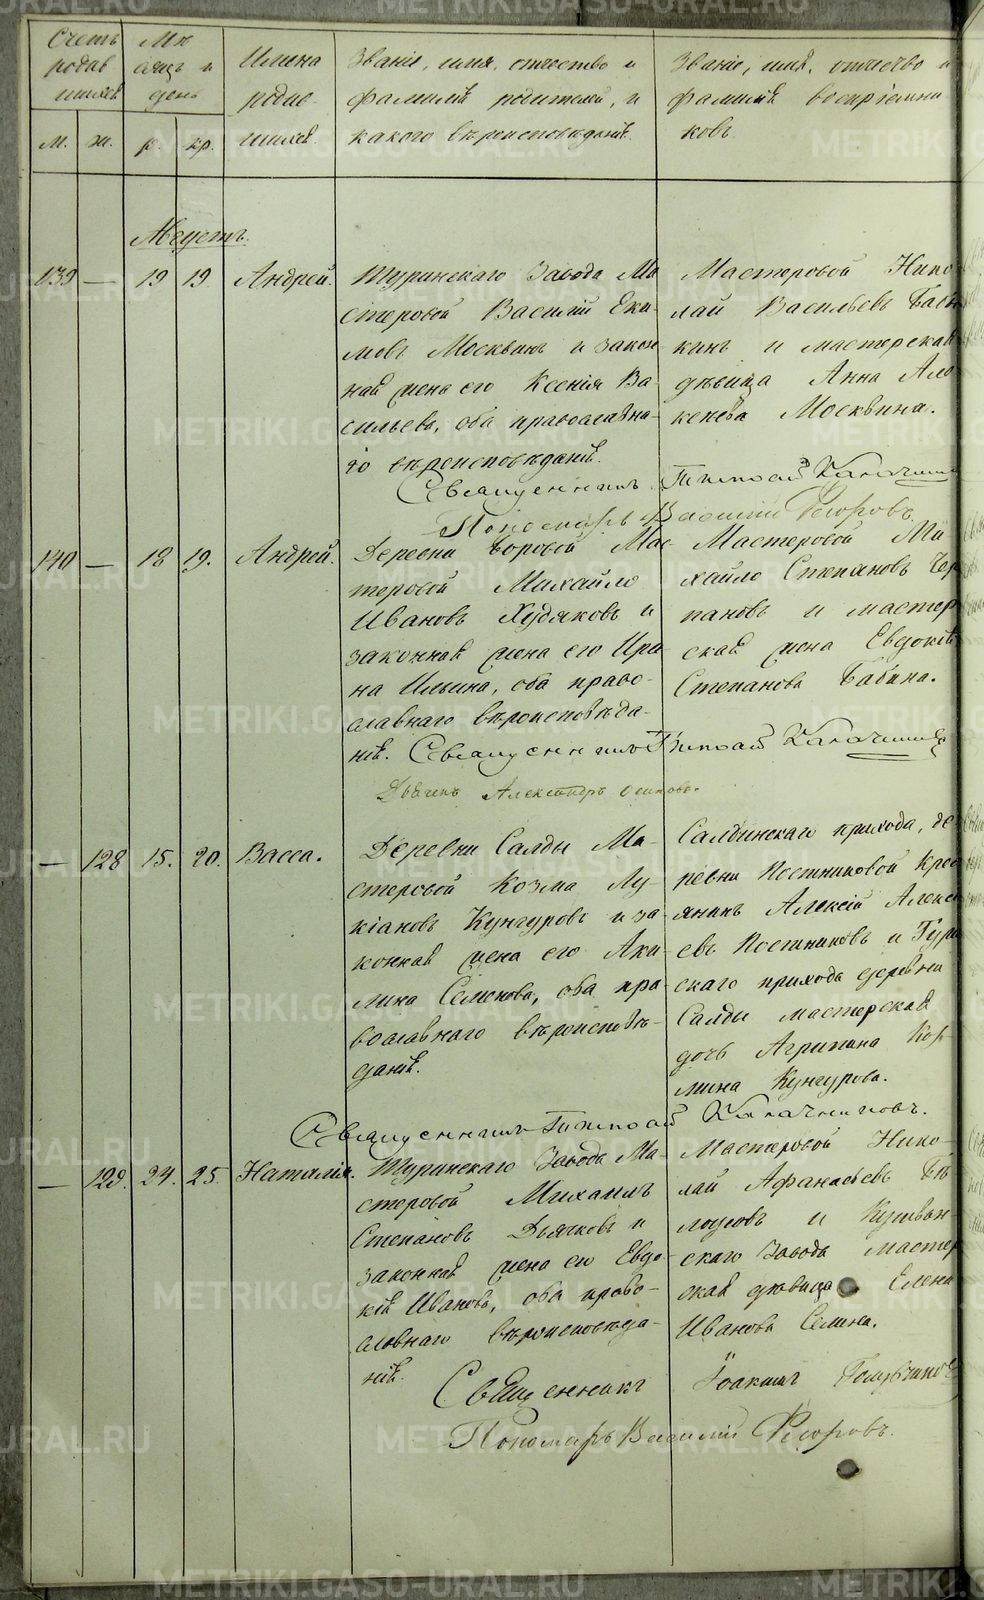 Счетъ родив шихся
м. ж.
Мѣ сяцъ и день
р. кр.
Имена родив шихся.
Званіе, имя, отчество и
фамилія родителей, и
какого вѣроисповѣданія.
Званіе, имя, отчество и
фамилія воспріемни
ковъ
Августъ.
139 — 19 19. Андрей.
Туринскаго Завода Ма
стеровой Василій Еки
мовъ Москвинъ и закон
ная жена его Ксенія Ва
сильева, оба православна
го вѣроисповѣданія.
Мастеровой Нико
лай Васильевъ
кинъ и мастерская
дѣвица Анна
Москвина.
Священникъ
Пономарь Василій Ѳедоровъ
140 — 18 19. Андрей.
Деревни Боровой Мас
теровой Михайло
Ивановъ Худяковъ и
законная жена его Ири
на Ильина, оба право-
славнаго вѣроисповѣда-
нія.
Мастеровой Ми
хайло Степановъ Чер
пановъ и мастер
ская жена Евдокія
Степанова Бабина.
Священникъ
Дьячекъ Александръ Осиповъ.
— 128 15. 20. Васса.
Деревни Салды Ма-
стеровой Козма Лу-
кіановъ Кунгуровъ и за-
конная жена его Аки-
лина Семенова, оба пра-
вославнаго вѣроисповѣ-
данія.
Салдинскаго прихода, де
ревни Постниковой крес
янинъ Алексій Алексѣ
евъ Постниковъ и Тури
скаго прихода деревни
Салды мастерская
дочь Агрипина Коз-
мина Кунгурова.
Священникъ Калачниковъ.
— 129. 24. 25. Наталія.
Туринскаго Завода Ма-
стеровой Михаилъ
Степановъ Дьячковъ и
законная жена его Евдо-
кія Иванова, оба право-
славнаго вѣроисповѣда-
нія.
Мастеровой Нико-
лай Афанасьевъ Бѣ
лоусовъ и Кушвин-
скаго Завода мастер
ская дѣвица Елена
Иванова Селина.
Священникъ Іоакимъ
Пономарь Василій Ѳедоровъ.
METRIKI.GASO-URAL.RU